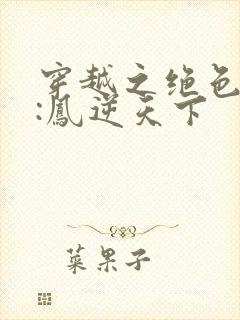 穿越之绝色
:凤逆天下
菜果子